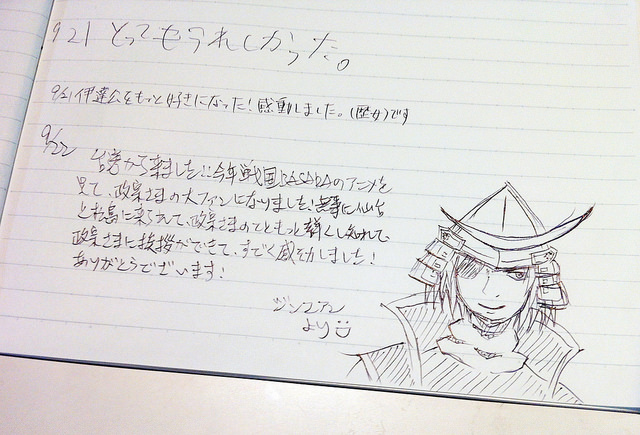 9.21 とってもうれしかった。
9/21 伊達公をもっと好きになった！感動しました。(歴女)です
9/22 台湾から来ました！今年戦国BASARAのアニメを
見て、政宗さまの大ファンになりました。無事に仙台
と松島に来られて、政宗さまのこともっと詳しく知れて、
政宗さまに挨拶ができて、すごく感動しました！
ありがとうございます！
ジンユアン
より